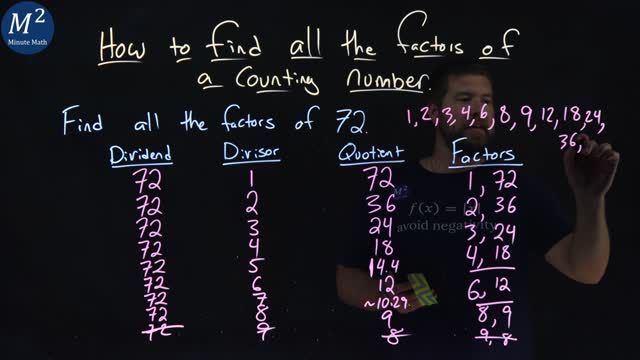 M²
Minute Math
How to find all the factors of
a counting number.
Find all the factors of 72.
1, 2, 3, 4, 6, 8, 9, 12, 18, 24,
36,
Dividend Divisor Quotient Factors
72 1 72 1, 72
72 2 36 2, 36
72 3 24 3, 24
72 4 18 4, 18
72 5 14.4
72 6 12 6, 12
72 7 ~10.29
72 8 9 8, 9
72 9 8 9, 8
M²
avoid negativity